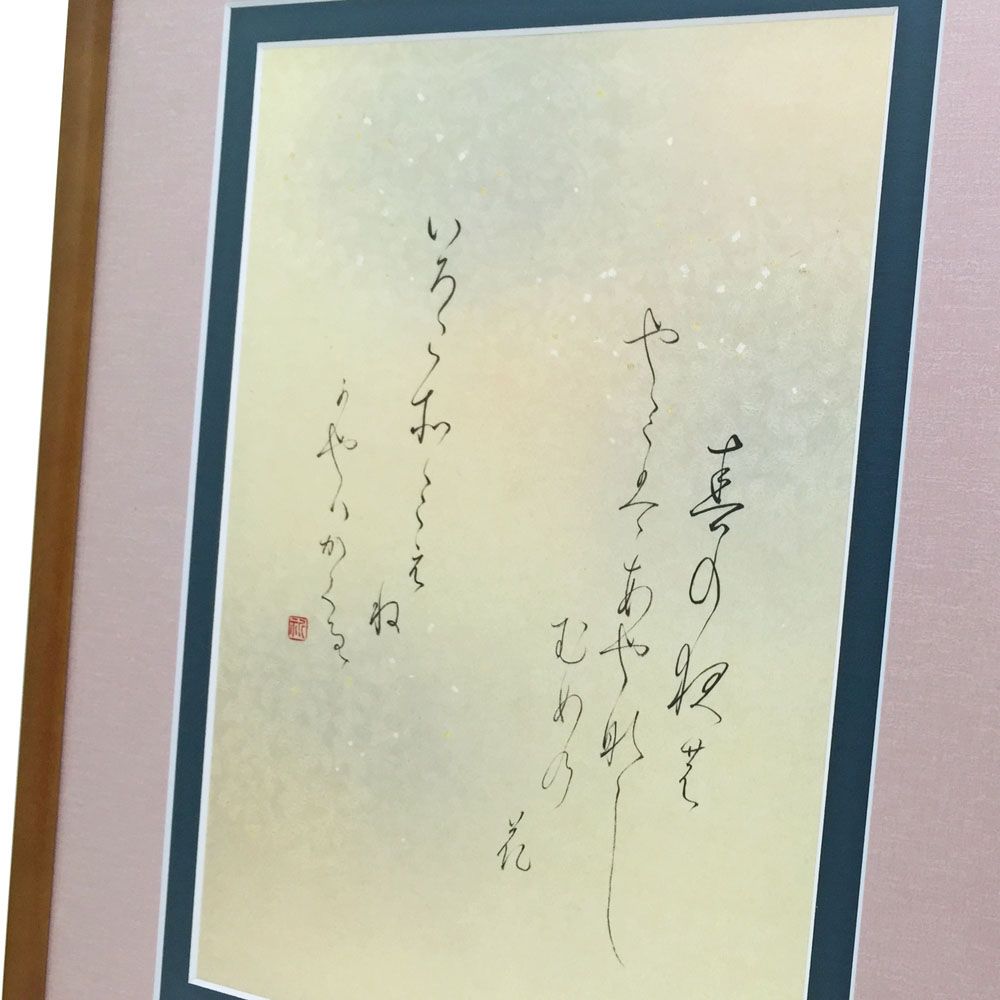 春の夜の
やみはあやなし
むめの花
いろこそみえね
かやはかくるゝ